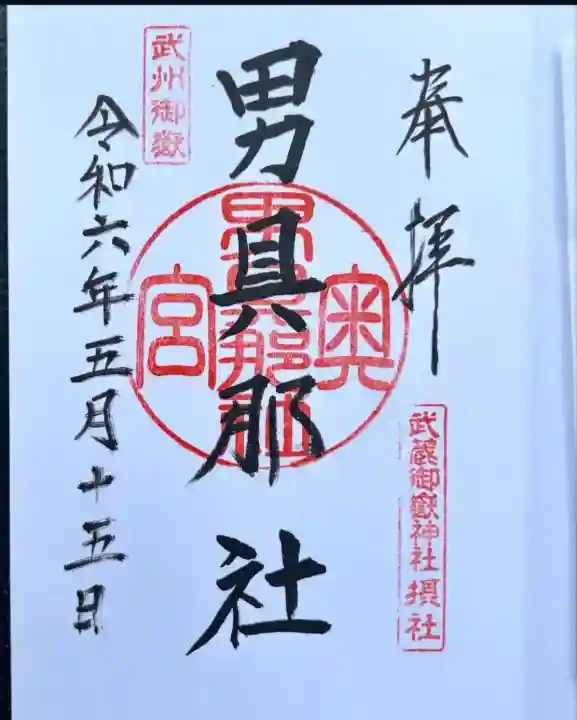 奉拝
武蔵御嶽神社摂社
男具那社
奥
男具那社
宮
武州御嶽
令和六年五月十五日